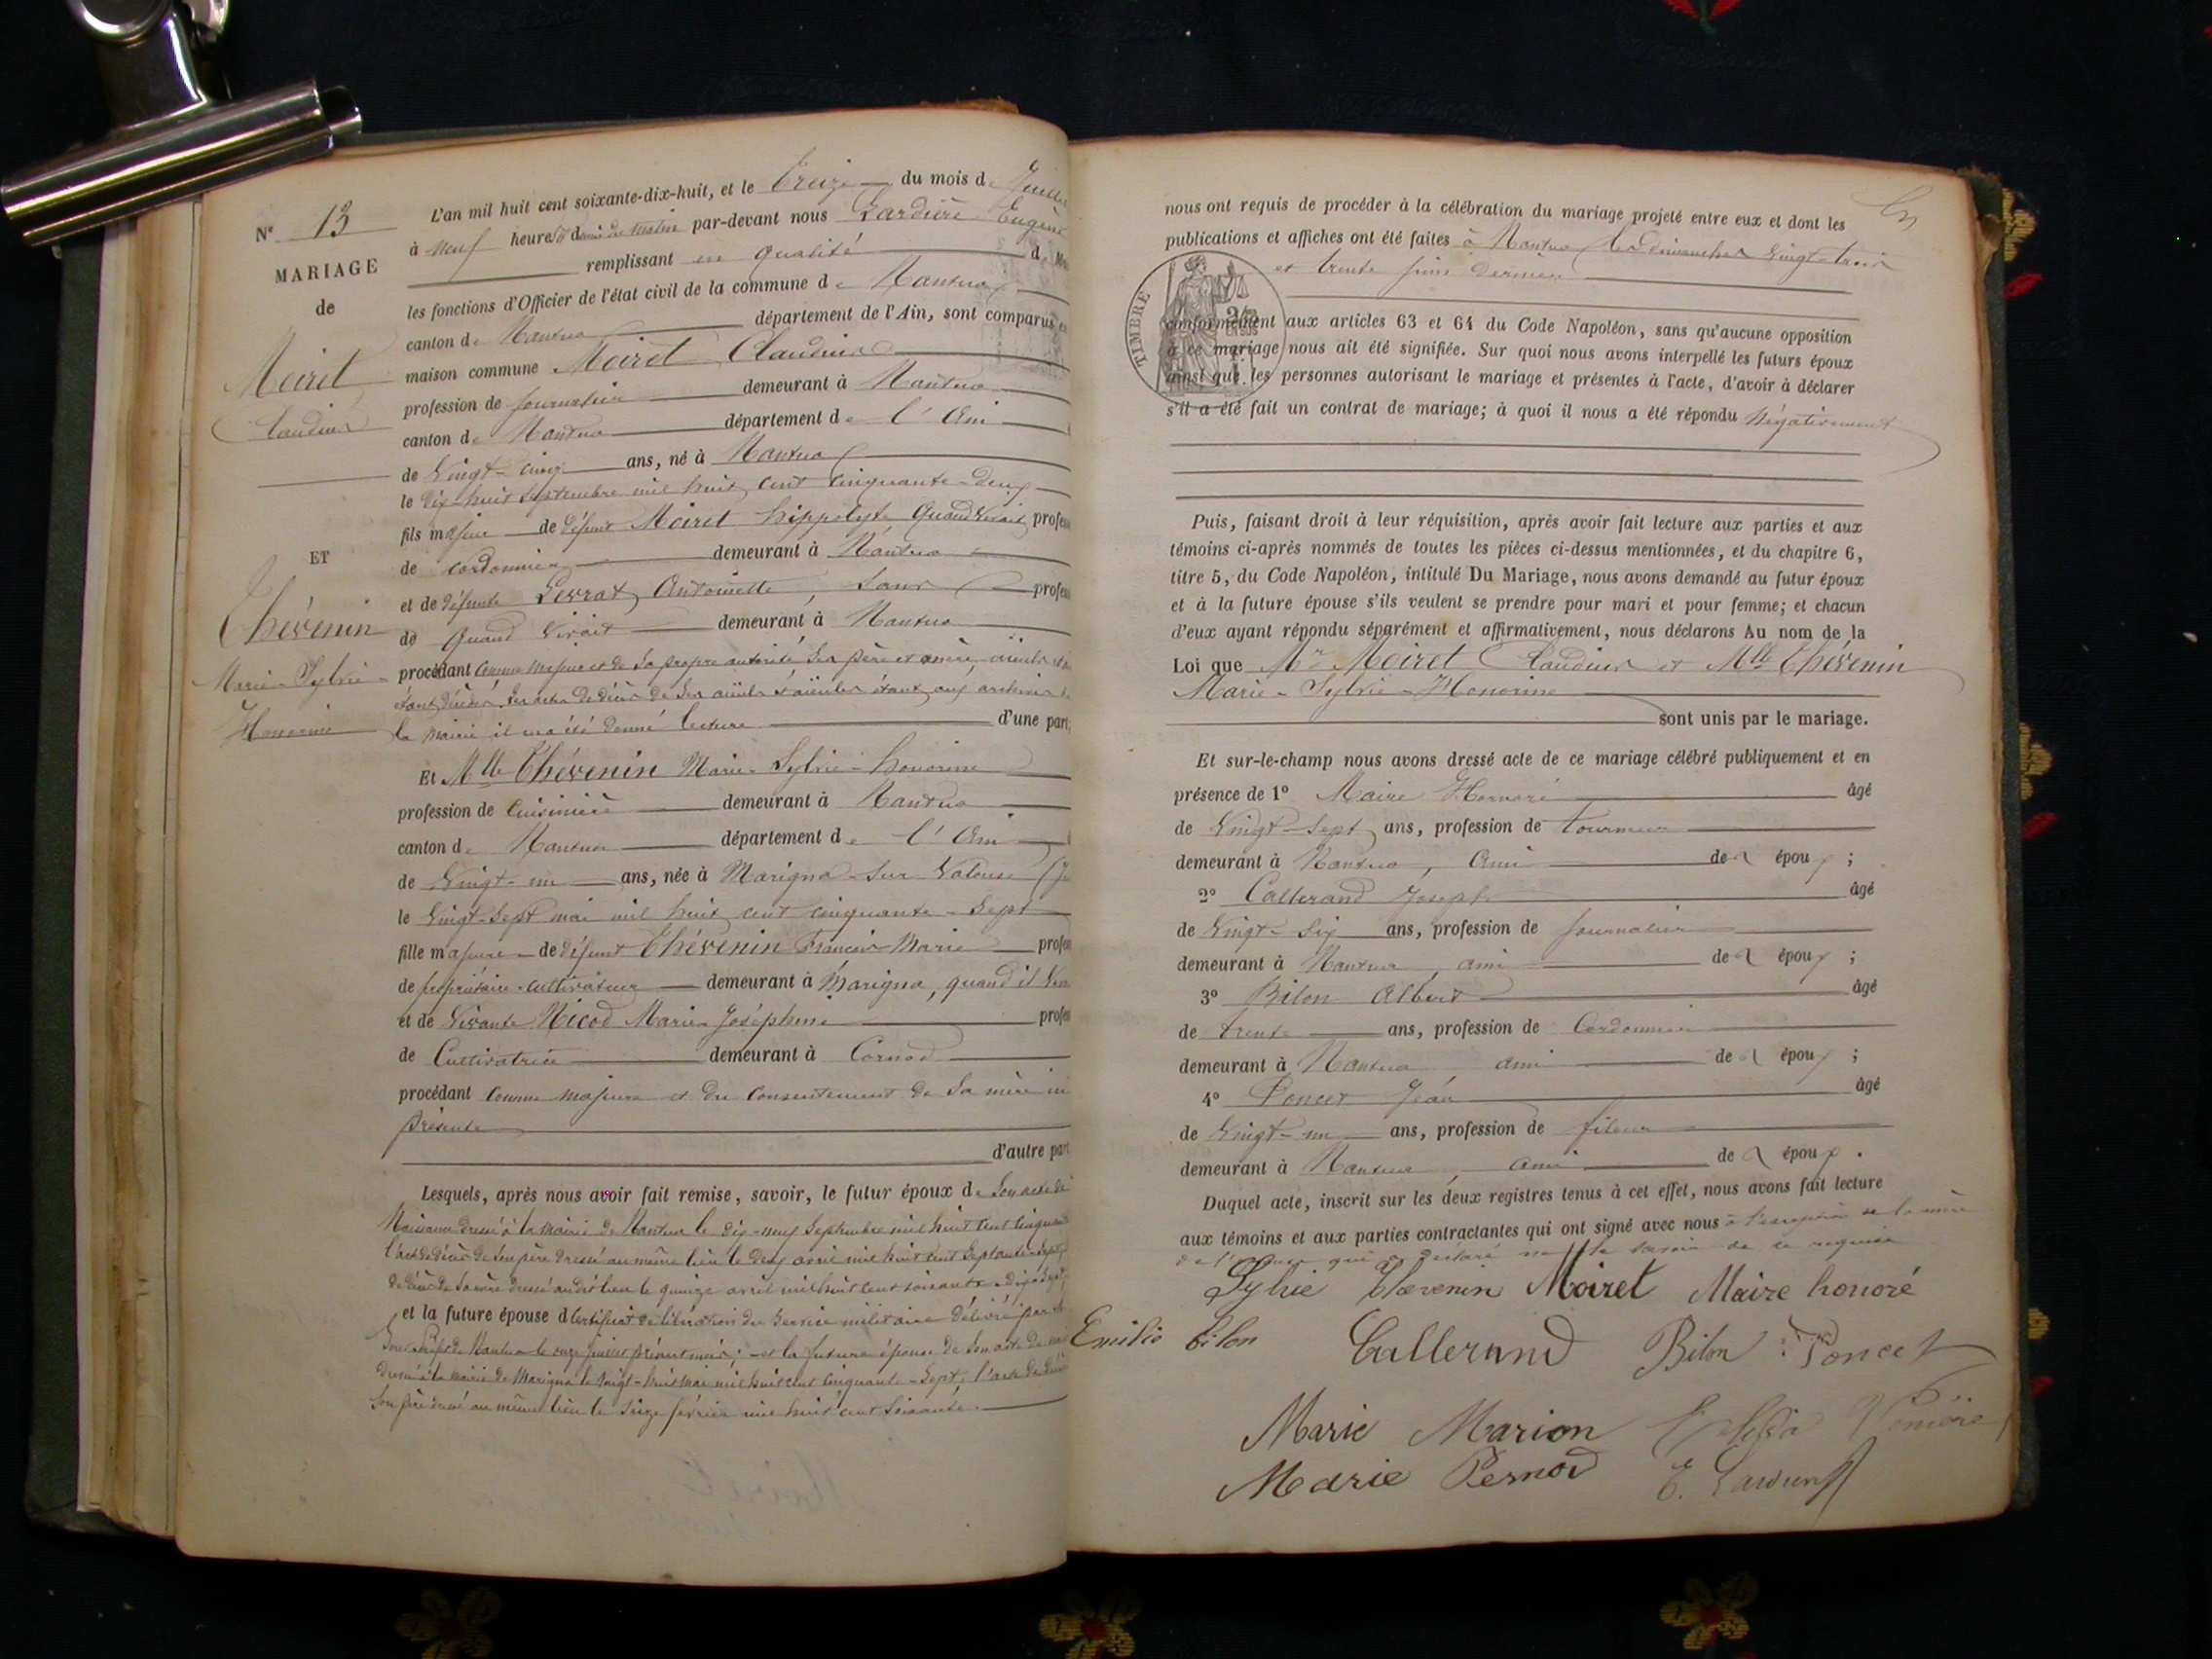 N° 13
MARIAGE
de
Moiret
Claudius
ET
Thévenin
Marie-Sylvie-
Honorine
L'an mil huit cent soixante-dix-huit, et le treize du mois de Juillet
à neuf heures et demie du matin par-devant nous Lardière Eugène
remplissant en qualité de
les fonctions d'Officier de l'état civil de la commune de Nantua
canton de Nantua département de l'Ain, sont comparus en
maison commune Moiret Claudius
profession de journalier demeurant à Nantua
canton de Nantua département de l'Ain
de vingt-cinq ans, né à Nantua
le dix-huit septembre mil huit cent cinquante-deux
fils majeur de défunt Moiret hippolyte quand vivait, profes
de cordonnier demeurant à Nantua
et de défunte Levrat Antoinette, sans profes
de quand vivait demeurant à Nantua
procédant comme majeur et de sa propre autorité ses père et mère, aïeuls et
étant décédés, les actes de décès de ses aïeuls et aïeules étant aux archives de
la mairie il en a été donné lecture d'une part,
Et Mlle Thévenin Marie-Sylvie-honorine
profession de cuisinière demeurant à Nantua
canton de Nantua département de l'Ain
de vingt-un ans, née à Marigna-sur-Valouse
le vingt-sept mai mil huit cent cinquante-sept
fille majeure de défunt Thévenin François-Marie profes
de propriétaire-cultivateur demeurant à Marigna, quand il
et de vivante Nicod Marie-Joséphine profes
de cultivatrice demeurant à Cornod
procédant comme majeure et du consentement de sa mère ici
présente
d'autre part
Lesquels, après nous avoir fait remise, savoir, le futur époux de son acte de
naissance dressé à la mairie de Nantua le dix-neuf septembre mil huit cent cinquante
l'acte de décès de son père dressé au même lieu le deux avril mil huit cent septante-sept,
de décès de sa mère dressé audit lieu le quinze avril mil huit cent soixante-dix-sept
et la future épouse d certificat de libération du service militaire délivré par
Sous-Préfet de Nantua le onze juillet présent mois; et la future épouse de son acte de
dressé à la mairie de Marigna le vingt-huit mai mil huit cent cinquante-sept, l'acte de décès
son père dressé au même lieu le seize février mil huit cent soixante.
nous ont requis de procéder à la célébration du mariage projeté entre eux et dont les
publications et affiches ont été faites à Nantua les dimanches vingt-trois
et trente juin dernier
TIMBRE
conformément aux articles 63 et 64 du Code Napoléon, sans qu'aucune opposition
à ce mariage nous ait été signifiée. Sur quoi nous avons interpellé les futurs époux
ainsi que les personnes autorisant le mariage et présentes à l'acte, d'avoir à déclarer
s'il a été fait un contrat de mariage; à quoi il nous a été répondu négativement
Puis, faisant droit à leur réquisition, après avoir fait lecture aux parties et aux
témoins ci-après nommés de toutes les pièces ci-dessus mentionnées, et du chapitre 6,
titre 5, du Code Napoléon, intitulé Du Mariage, nous avons demandé au futur époux
et à la future épouse s'ils veulent se prendre pour mari et pour femme; et chacun
d'eux ayant répondu séparément et affirmativement, nous déclarons Au nom de la
Loi que Mr Moiret Claudius et Mlle Thévenin
Marie-Sylvie-Honorine
sont unis par le mariage.
Et sur-le-champ nous avons dressé acte de ce mariage célébré publiquement et en
présence de 1° Maire Honoré âgé
de vingt-sept ans, profession de tourneur
demeurant à Nantua, ami des époux;
2° Callerand Joseph âgé
de vingt-six ans, profession de journalier
demeurant à Nantua, ami des époux;
3° Bilon Albert âgé
de trente ans, profession de cordonnier
demeurant à Nantua ami des époux;
4° Poncet Jean âgé
de vingt-un ans, profession de fileur
demeurant à Nantua, ami des époux.
Duquel acte, inscrit sur les deux registres tenus à cet effet, nous avons fait lecture
aux témoins et aux parties contractantes qui ont signé avec nous à l'exception de la mère
de l'épouse qui a déclaré ne le savoir de ce requise
Sylvie thevenin Moiret Maire honoré
Emilie bilon Callerand Bilon Poncet
Marie Marion
Marie Pernod E. Lardière